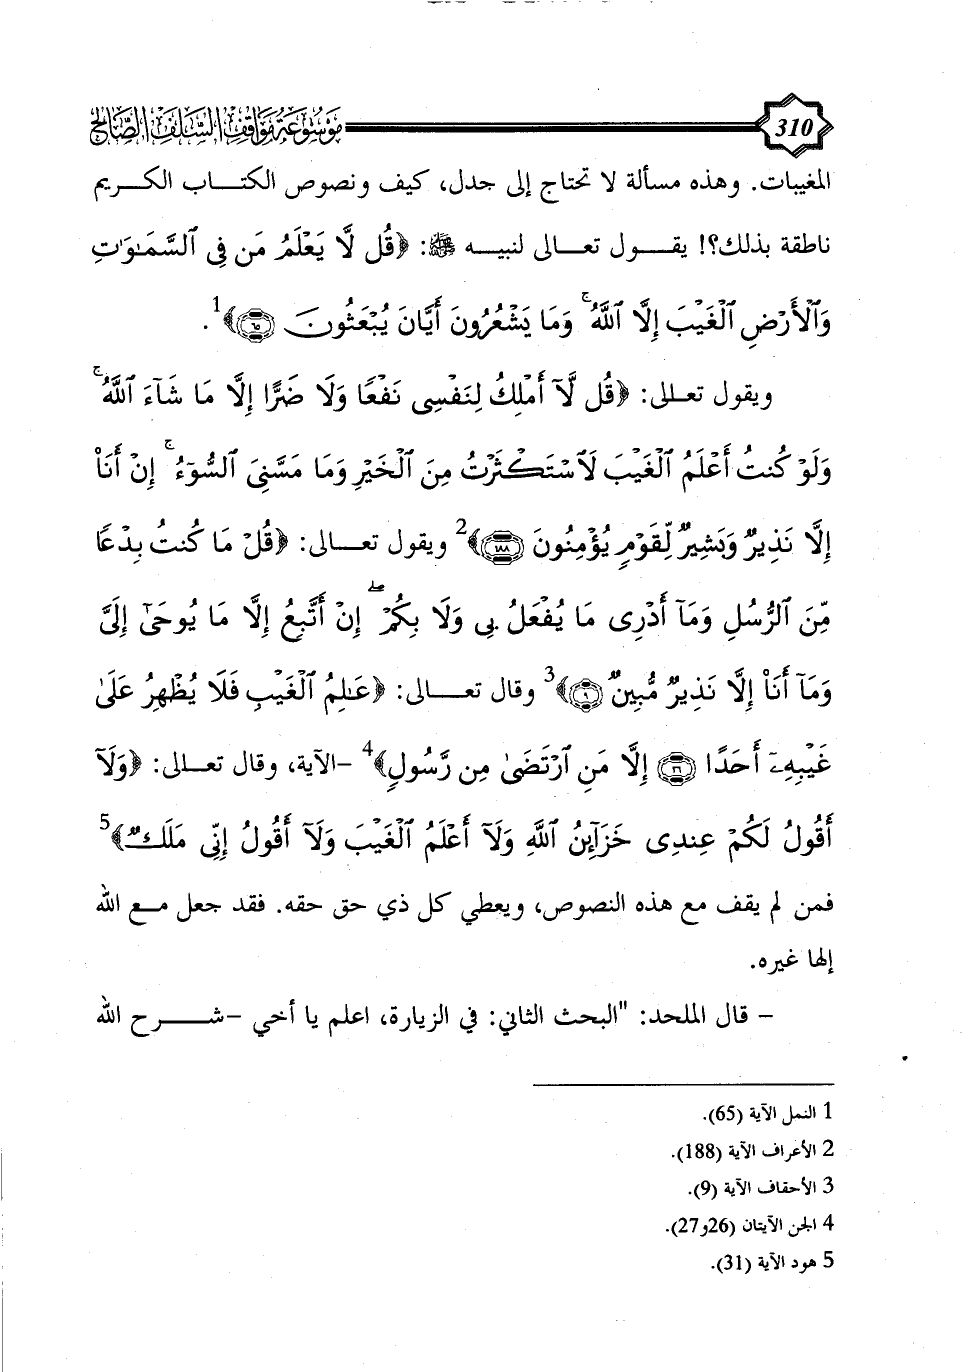 310
موسوعة مواقف السلف الصالح
المغيبات. وهذه مسألة لا تحتاج إلى جدل، كيف ونصوص الكتاب الكريم
ناطقة بذلك؟! يقول تعالى لنبيه ﷺ: ﴿قُل لَّا يَعْلَمُ مَن فِي ٱلسَّمَٰوَٰتِ
وَٱلْأَرْضِ ٱلْغَيْبَ إِلَّا ٱللَّهُ ۚ وَمَا يَشْعُرُونَ أَيَّانَ يُبْعَثُونَ ۝٦٥﴾1.
ويقول تعالى: ﴿قُل لَّآ أَمْلِكُ لِنَفْسِى نَفْعًا وَلَا ضَرًّا إِلَّا مَا شَآءَ ٱللَّهُ ۚ
وَلَوْ كُنتُ أَعْلَمُ ٱلْغَيْبَ لَٱسْتَكْثَرْتُ مِنَ ٱلْخَيْرِ وَمَا مَسَّنِىَ ٱلسُّوٓءُ ۚ إِنْ أَنَا۠
إِلَّا نَذِيرٌ وَبَشِيرٌ لِّقَوْمٍ يُؤْمِنُونَ ۝١٨٨﴾2 ويقول تعالى: ﴿قُلْ مَا كُنتُ بِدْعًا
مِّنَ ٱلرُّسُلِ وَمَآ أَدْرِى مَا يُفْعَلُ بِى وَلَا بِكُمْ ۖ إِنْ أَتَّبِعُ إِلَّا مَا يُوحَىٰٓ إِلَىَّ
وَمَآ أَنَا۠ إِلَّا نَذِيرٌ مُّبِينٌ ۝٩﴾3 وقال تعالى: ﴿عَٰلِمُ ٱلْغَيْبِ فَلَا يُظْهِرُ عَلَىٰ
غَيْبِهِۦٓ أَحَدًا ۝٢٦ إِلَّا مَنِ ٱرْتَضَىٰ مِن رَّسُولٍ﴾4 -الآية، وقال تعالى: ﴿وَلَآ
أَقُولُ لَكُمْ عِندِى خَزَآئِنُ ٱللَّهِ وَلَآ أَعْلَمُ ٱلْغَيْبَ وَلَآ أَقُولُ إِنِّى مَلَكٌ﴾5
فمن لم يقف مع هذه النصوص، ويعطي كل ذي حق حقه. فقد جعل مع الله
إلها غيره.
- قال الملحد: "البحث الثاني: في الزيارة، اعلم يا أخي -شرح الله
1 النمل الآية (65).
2 الأعراف الآية (188).
3 الأحقاف الآية (9).
4 الجن الآيتان (26و27).
5 هود الآية (31).